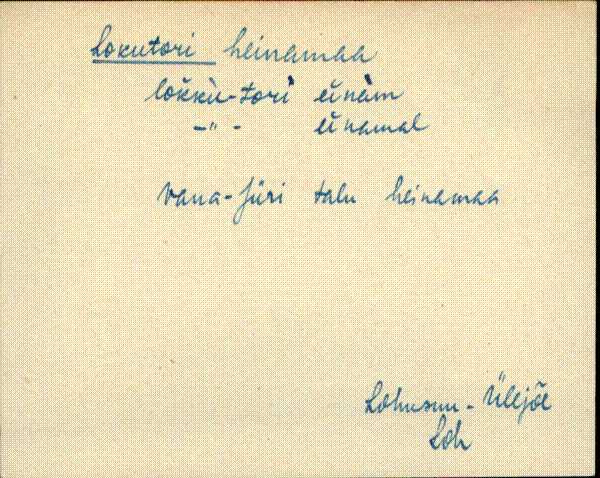 Lokutori heinamaa
lokku-tori einam
-"- einamal
vana-Jüri talu heinamaa
Lohusuu - Ülejõe
Loh